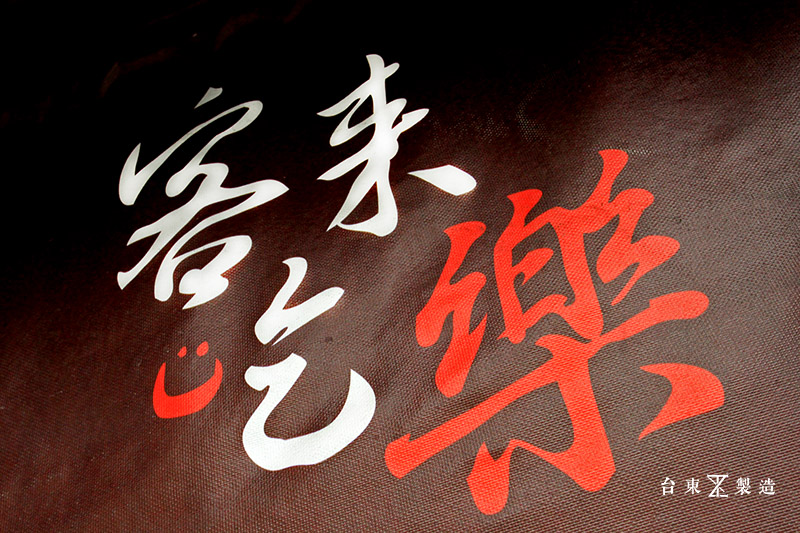 客来
吃樂
台東製造